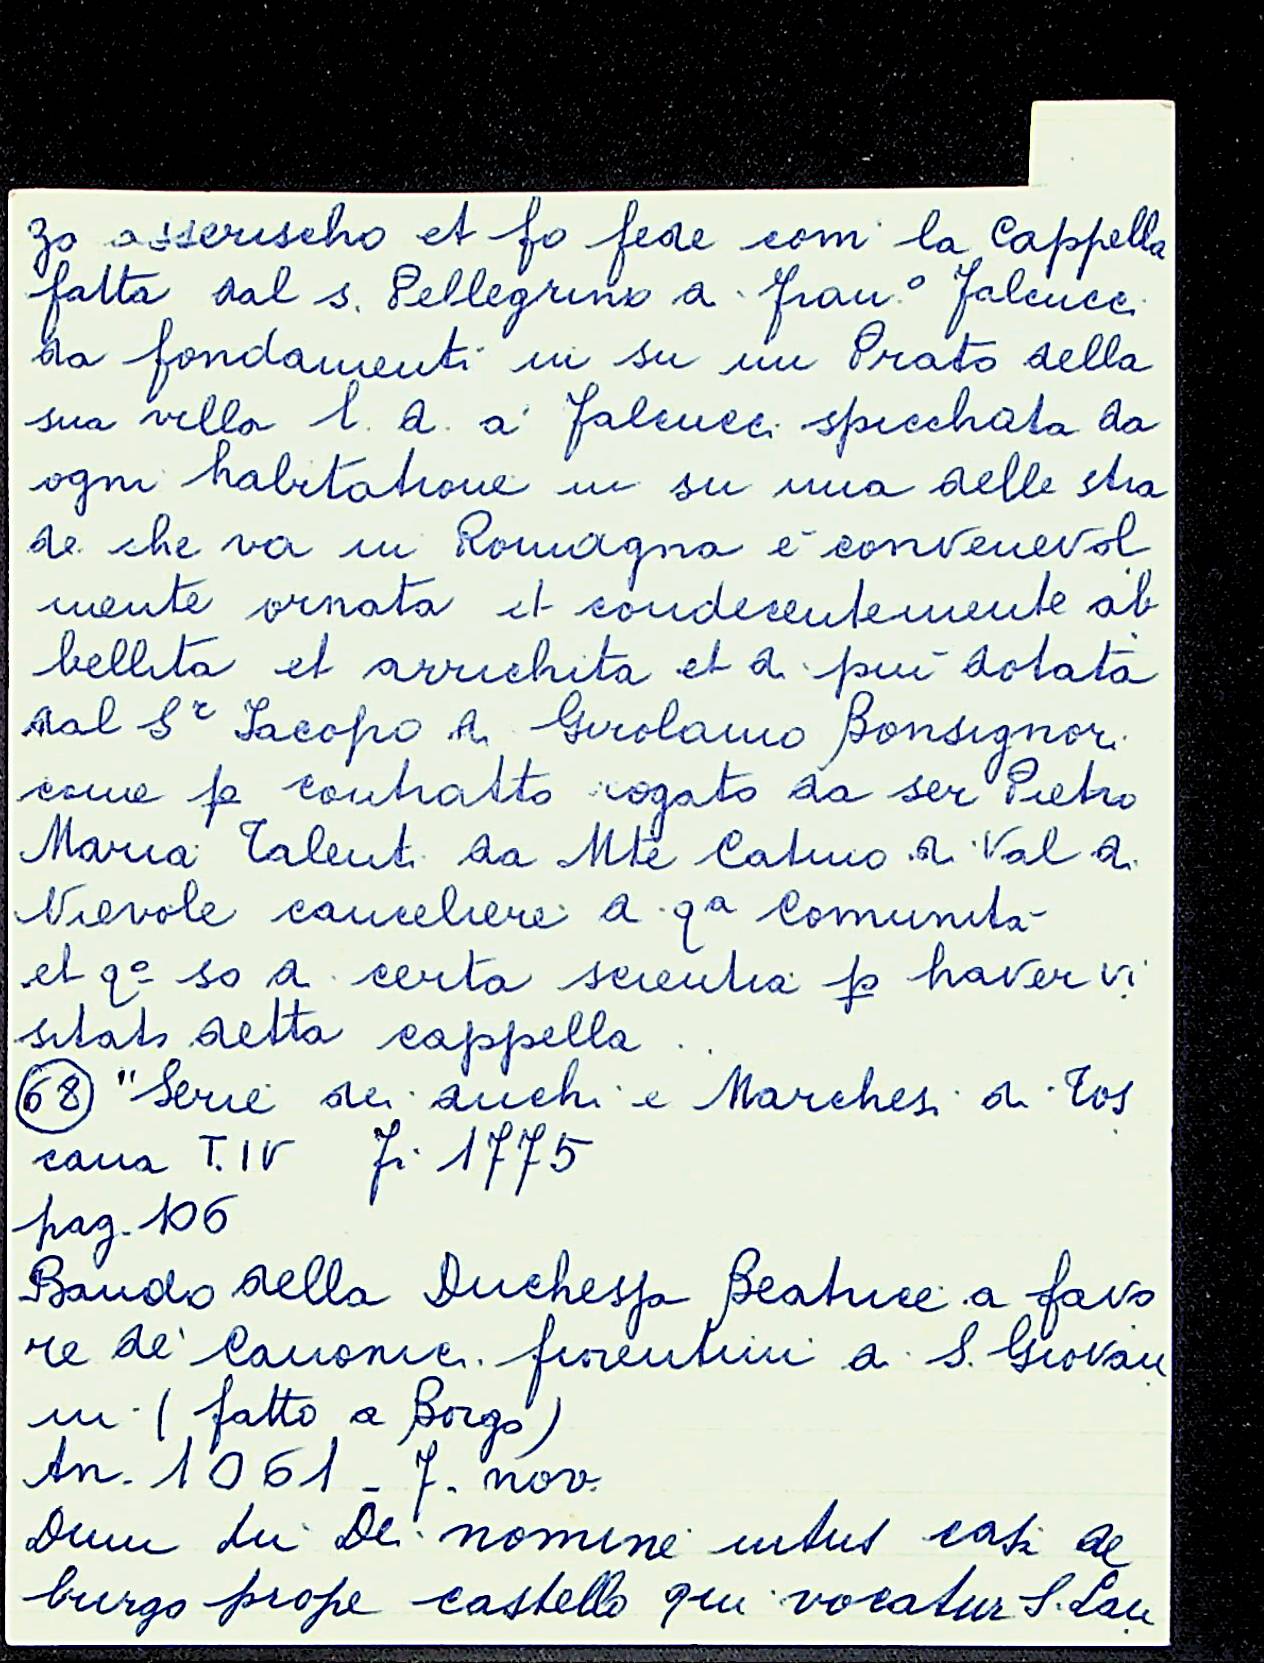 zo asserischo et fo fede com la Cappella
fatta dal s. Pellegrino di Fran.º Falcucci
da fondamenti in su un Prato della
sua villa l. d. a' Falcucci spicchata da
ogni habitatione in su una delle stra
de che va in Romagna è convenevol
mente ornata et condecentemente ab
bellita et arrichita et di più dotata
dal Sr Iacopo di Girolamo Bonsignori
come p contratto rogato da ser Pietro
Maria Talenti da Mte Catino di Val di
Nievole canceliere di qa Comunità
et qo so di certa scientia p haver vi
sitato detta cappella . .
(68) "Serie dei duchi e Marchesi di Tos
cana T. IV Fi 1775
pag. 106
Bando della Duchessa Beatrice a favo
re de' Canonici fiorentini di S. Giovan
ni (fatto a Borgo)
An. 1061 - 7. nov.
Dum in Dei nomine intus casi de
burgo prope castello qui vocatur S. Lau